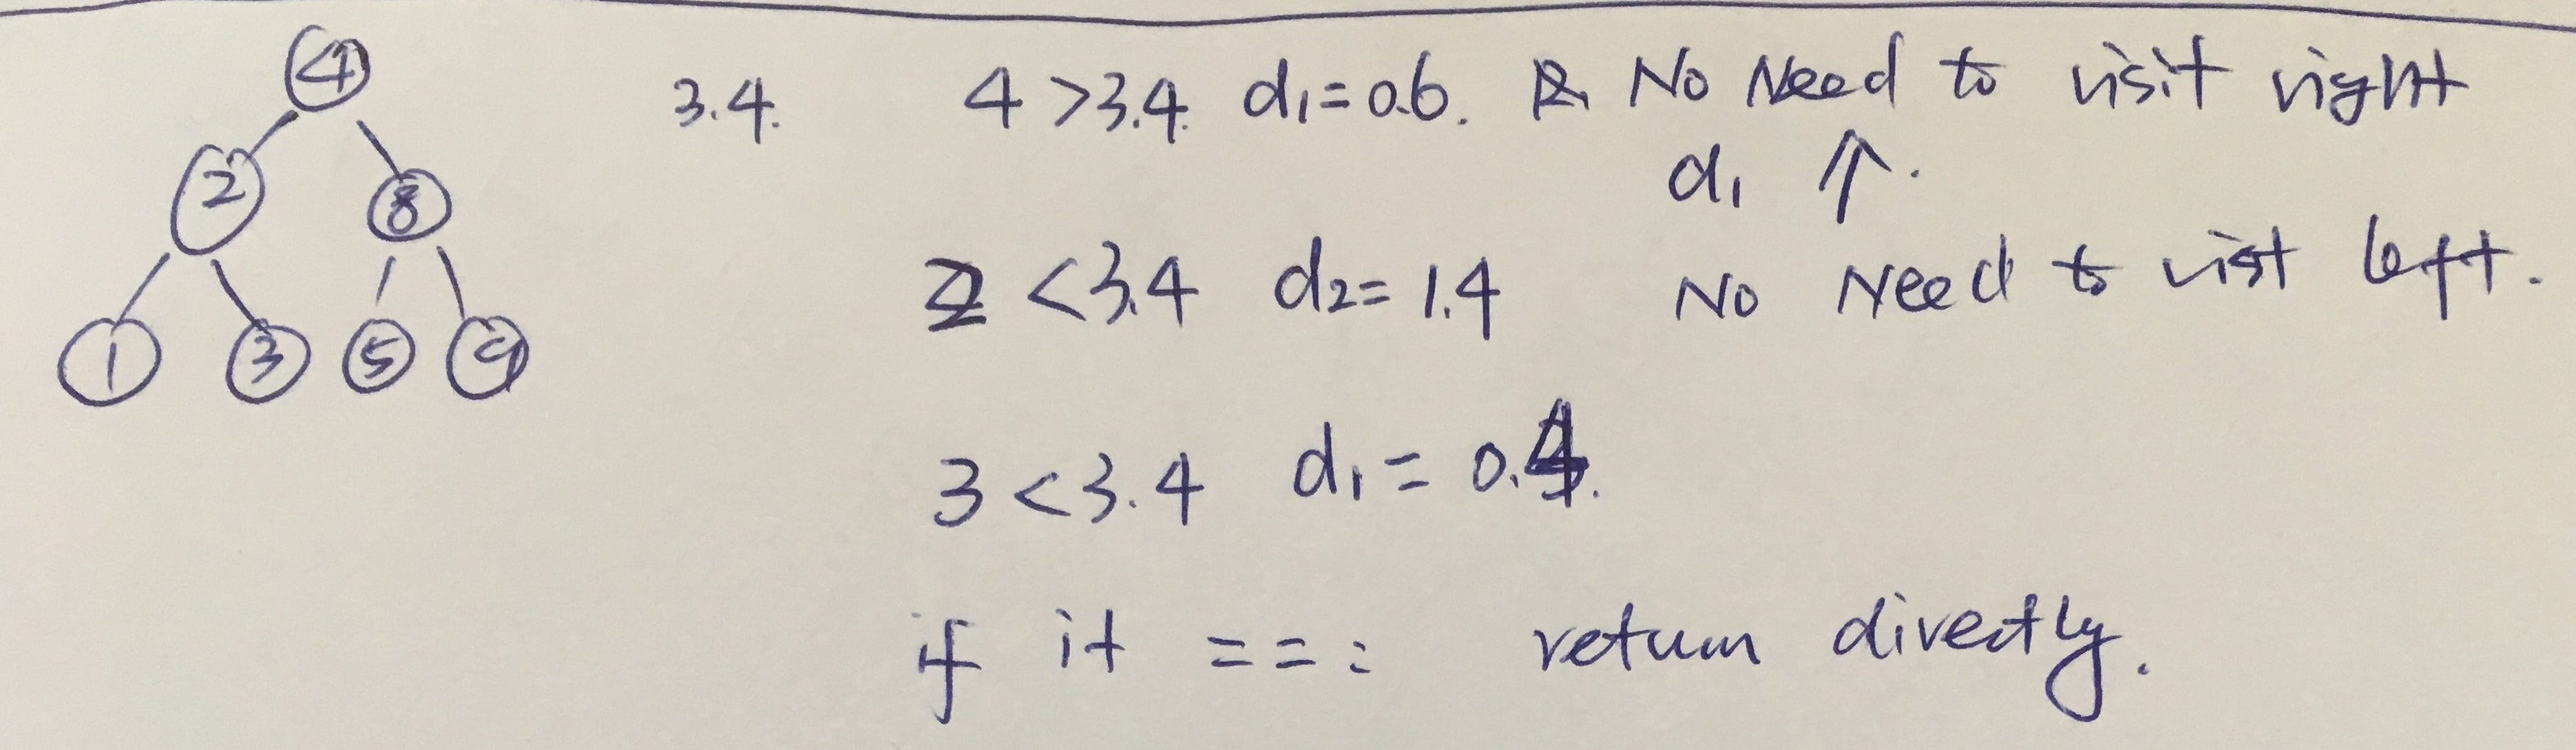 4
2 8
1 3 5 9
3.4. 4 > 3.4. d₁=0.6. R. No Need to visit right
d₁ ↑.
2 < 3.4 d₂= 1.4 No Need to vist left.
3 < 3.4 d₁ = 0.4.
if it === return directly.